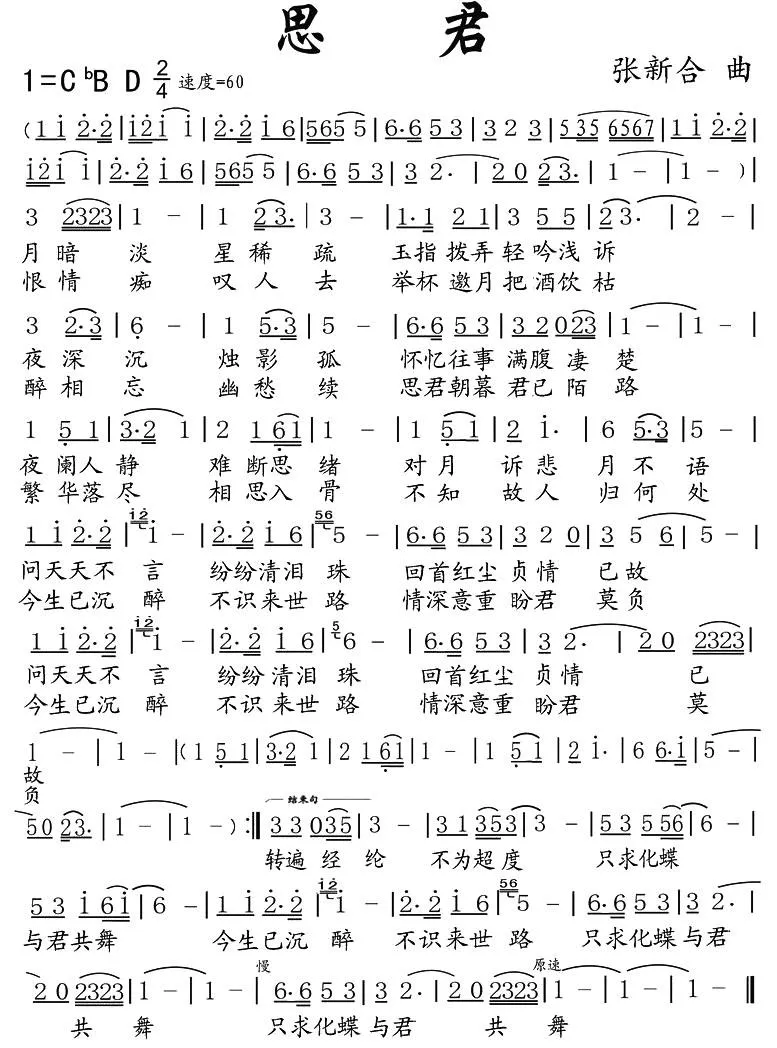 思 君
1=C ᵇB D 2/4 速度=60
张新合 曲
(1 i 2·2|i2i i|2·2 i 6|565 5|6·6 5 3|3 2 3|535 6567|1 i 2·2|
i2i i|2·2 i 6|565 5|6·6 5 3|3 2·|2 0 23·|1 -|1 -)|
3 2323|1 -|1 23·|3 -|1·1 2 1|3 5 5|2 3·|2 -|
月暗 淡 星稀 疏 玉指拨弄轻吟浅诉
恨情 痴 叹人 去 举杯邀月把酒饮枯
3 2·3|6 -|1 5·3|5 -|6·6 5 3|3 2 0 23|1 -|1 -|
夜深 沉 烛影 孤 怀忆往事满腹凄 楚
醉相 忘 幽愁 续 思君朝暮君已陌 路
1 5 1|3·2 1|2 1 61|1 -|1 51|2 i·|6 5·3|5 -|
夜阑人静 难断思 绪 对月 诉悲 月不 语
繁华落尽 相思入 骨 不知 故人 归何 处
1 i 2·2|i2 i -|2·2 i 6|56 5 -|6·6 5 3|3 2 0|3 5 6|5 -|
问天天不 言 纷纷清泪 珠 回首红尘 贞情 已故
今生已沉 醉 不识来世 路 情深意重 盼君 莫负
1 i 2·2|i2 i -|2·2 i 6|5 6 -|6·6 5 3|3 2·|2 0 2323|
问天天不 言 纷纷清泪 珠 回首红尘 贞情 已
今生已沉 醉 不识来世 路 情深意重 盼君 莫
1 -|1 -|(1 5 1|3·2 1|2 1 61|1 -|1 51|2 i·|6 6·i|5 -|
故
负
结束句
50 23·|1 -|1 -):‖3 3 035|3 -|3 1 353|3 -|5 3 5 56|6 -|
转遍 经 纶 不为超 度 只求化蝶
5 3 i 6i|6 -|1 i 2·2|i2 i -|2·2 i 6|56 5 -|6·6 5 3|3 2·|
与君共舞 今生已沉 醉 不识来世 路 只求化蝶与君
慢 原速
2 0 2323|1 -|1 -|6·6 5 3|3 2·|2 0 2323|1 -|1 -‖
共 舞 只求化蝶与君 共 舞